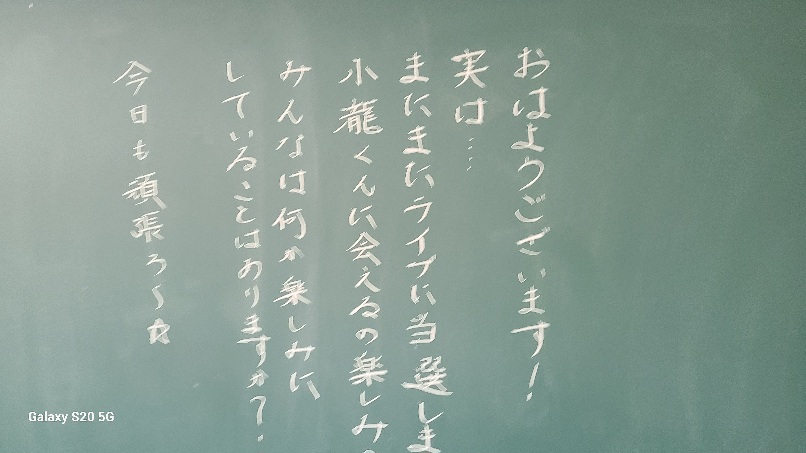 おはようございます！
実は…
またまたライブに当選しま
小龍くんに会えるの楽しみ
みんなは何か楽しみに
していることはありますか？
今日も頑張ろ〜☆
Galaxy S20 5G